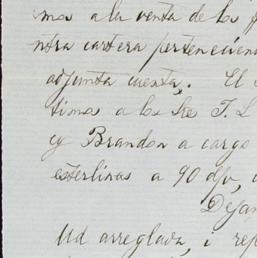 ma a la venta de los
ntra cartera pertenecien
adjunta cuenta. El
timos a los Sres T. L
cy Brandon a cargo
esterlinas a 90 d/v,
Dejan
Ud arreglada, i rep